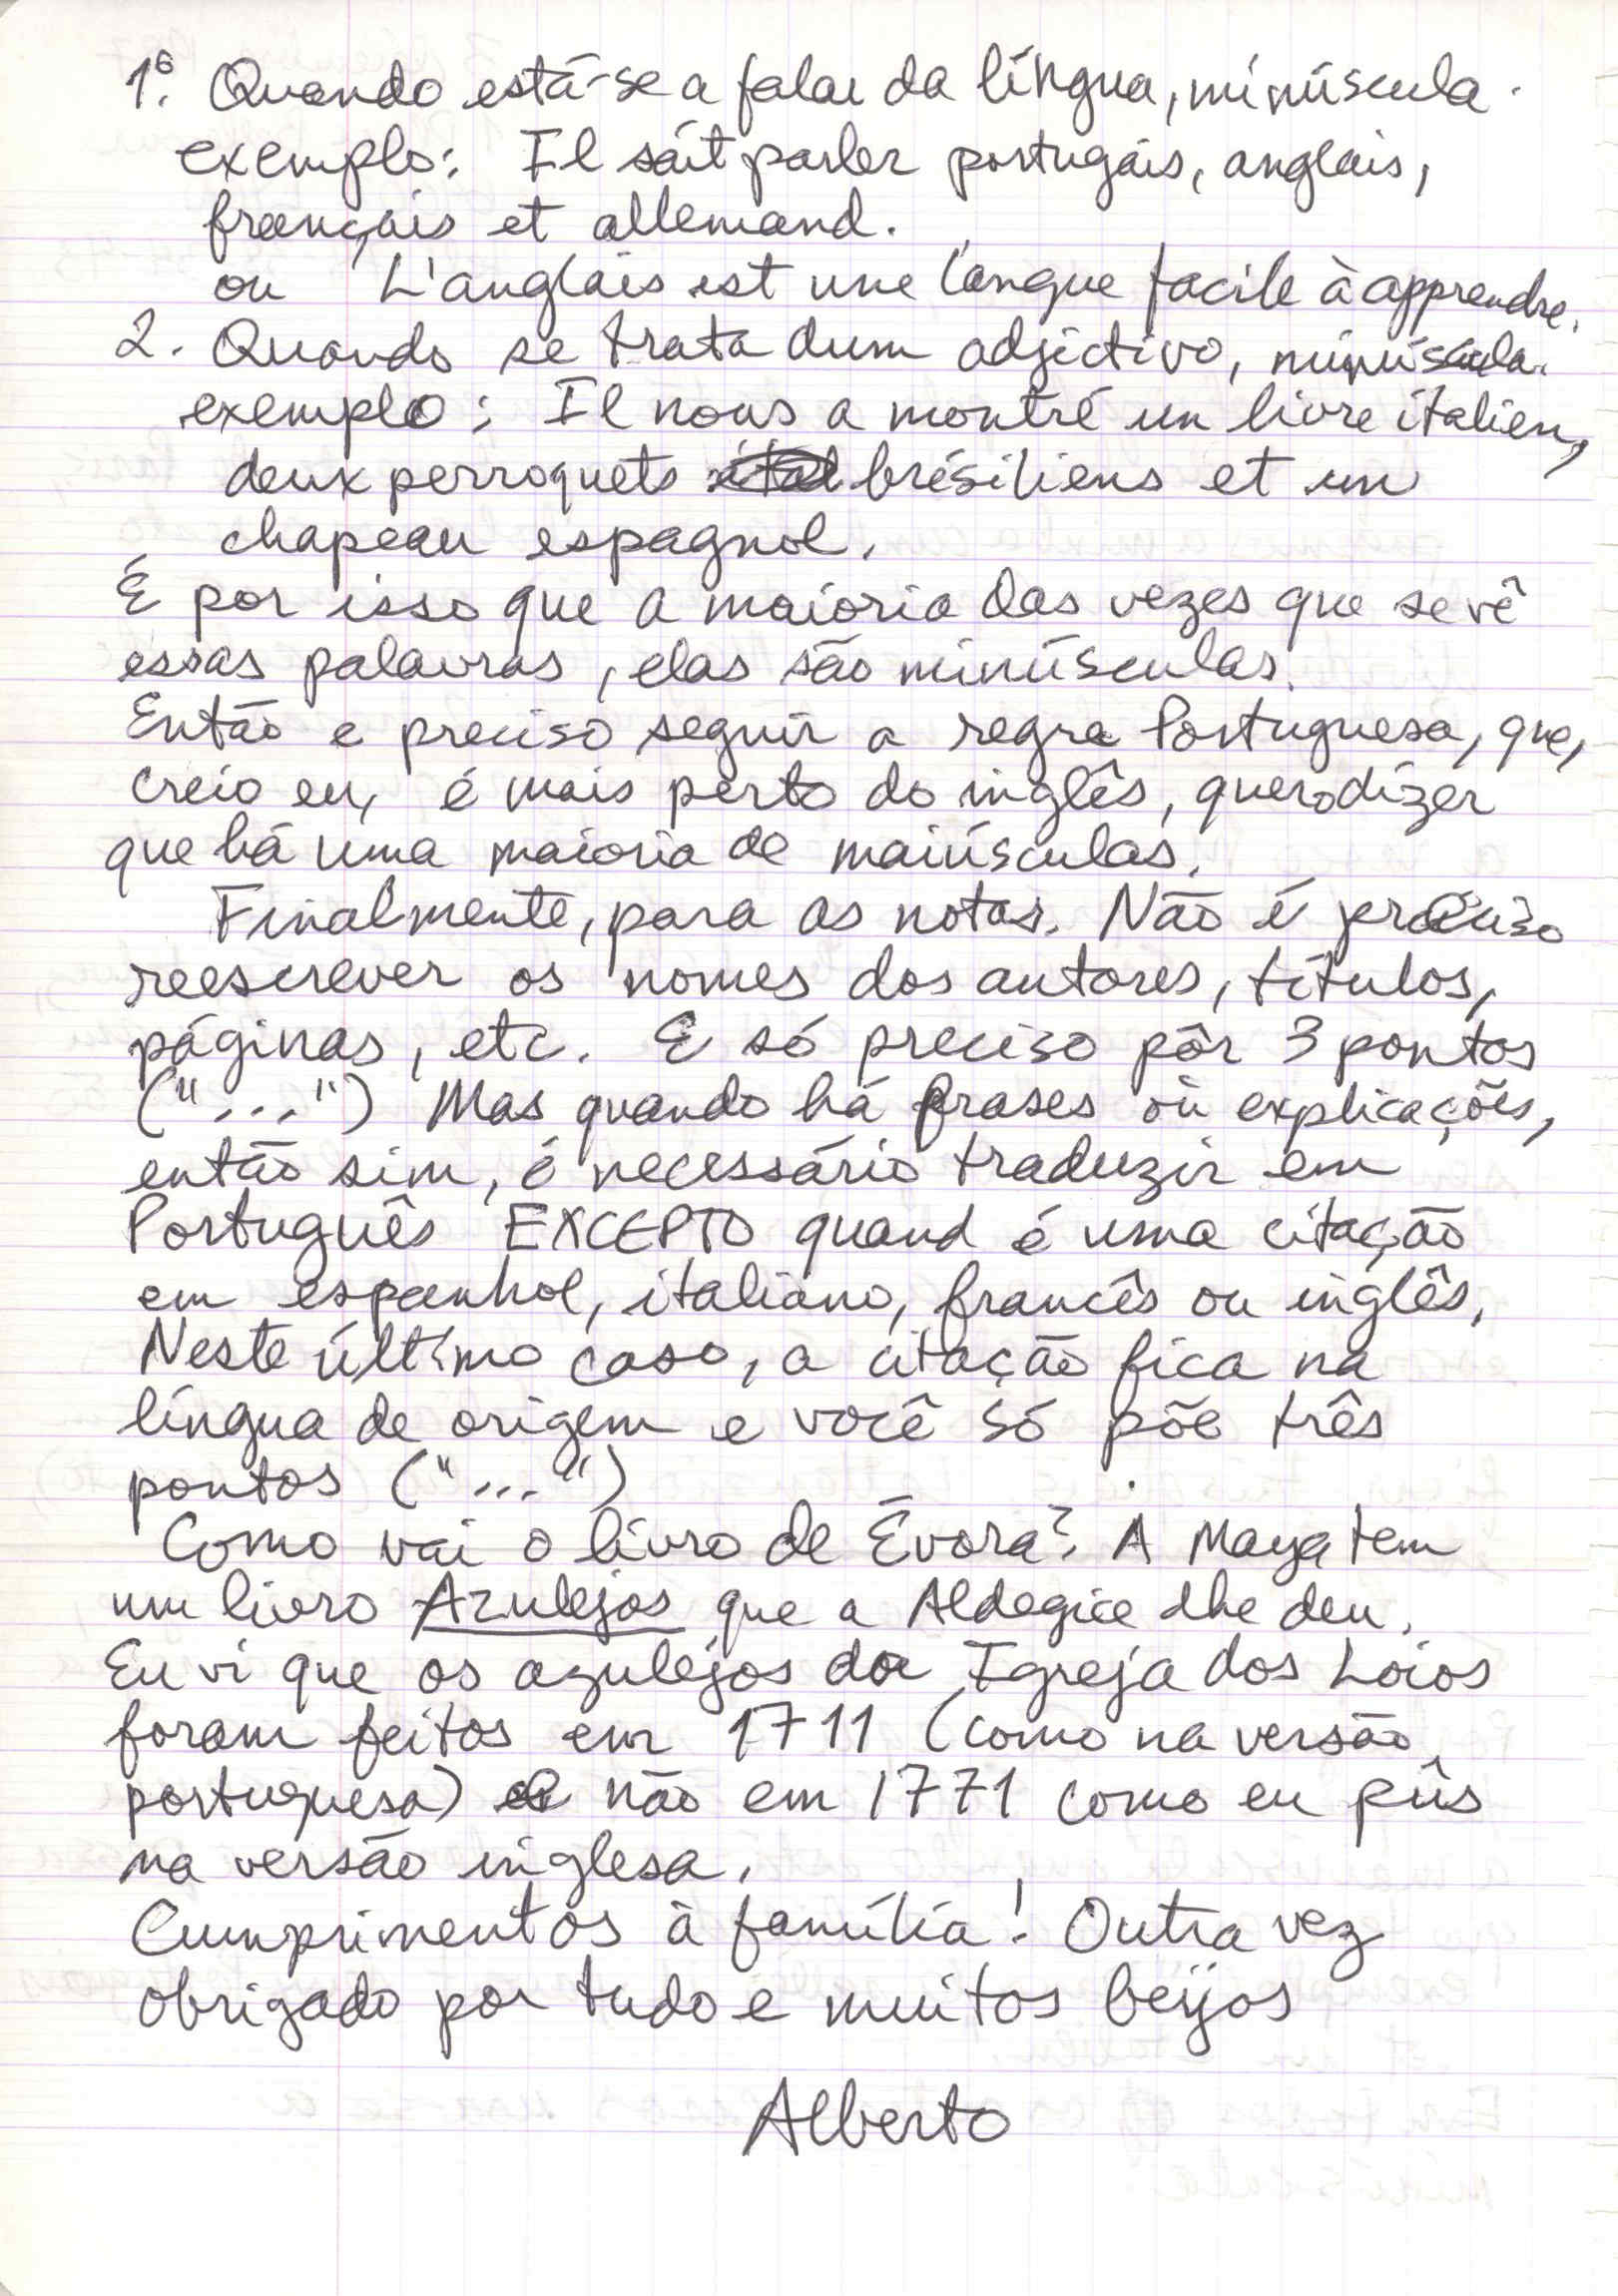 1º. Quando está-se a falar da língua, minúscula.
exemplo: Il sait parler portugais, anglais,
français et allemand.
ou L'anglais est une langue facile à apprendre.
2. Quando se trata dum adjectivo, minúscula.
exemplo: Il nous a montré un livre italien,
deux perroquets brésiliens et un
chapeau espagnol.
É por isso que a maioria das vezes que se vê
essas palavras, elas são minúsculas.
Então e preciso seguir a regra Portuguesa, que,
creio eu, é mais perto do inglês, quero dizer
que há uma maioria de maiúsculas.
Finalmente, para as notas. Não é preciso
reescrever os nomes dos autores, títulos,
páginas, etc. E só preciso pôr 3 pontos
("...") Mas quando há frases ou explicações,
então sim, é necessário traduzir em
Português EXCEPTO quand é uma citação
em espanhol, italiano, francês ou inglês.
Neste último caso, a citação fica na
língua de origem e você só põe três
pontos ("...")
Como vai o livro de Évora? A Maya tem
um livro Azulejos que a Aldegice lhe deu.
Eu vi que os azulejos da Igreja dos Loios
foram feitos em 1711 (como na versão
portuguesa) e não em 1771 como eu pûs
na versão inglesa.
Cumprimentos à família! Outra vez
obrigado por tudo e muitos beijos
Alberto